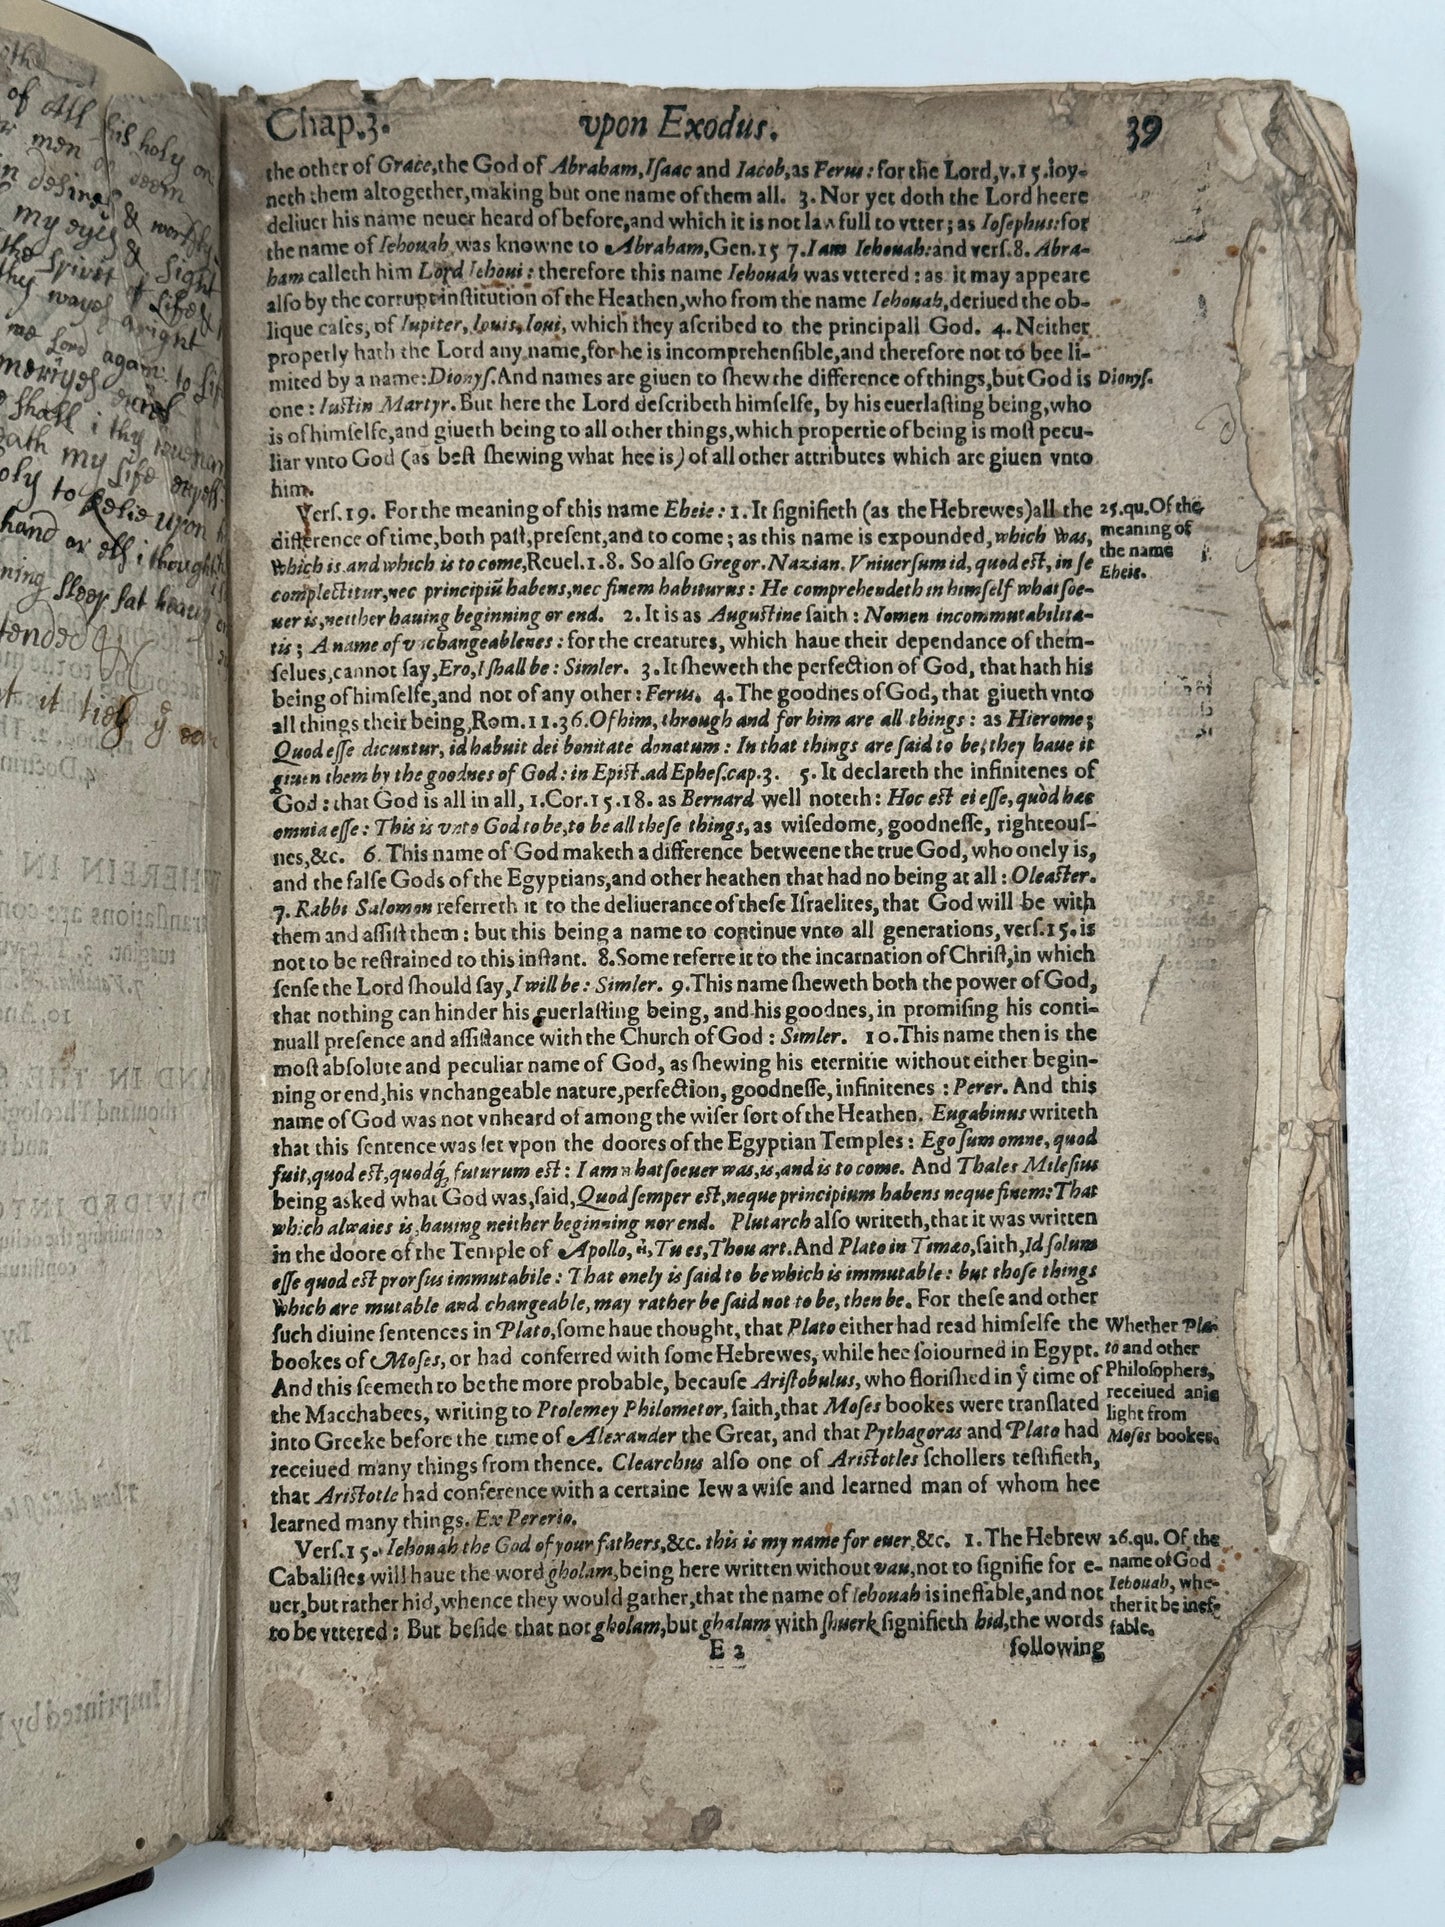 of All his holy on
men or seem
desires & worldly
my eyes &
the Spirit of Life &
thy wayes aright
me Lord again to
shall i thy
my Life
oly to Relie upon
hand or els i thought
ning sleep sat heavy
tended
t it
Chap.3. vpon Exodus. 39
the other of Grace,the God of Abraham,Iſaac and Iacob,as Ferus: for the Lord,v.15.ioy-
neth them altogether,making but one name of them all. 3. Nor yet doth the Lord heere
deliuer his name neuer heard of before,and which it is not lawfull to vtter; as Ioſephus:for
the name of Iehouah was knowne to Abraham,Gen.15 7.I am Iehouah:and verſ.8. Abra-
ham calleth him Lord Iehoui: therefore this name Iehouah was vttered: as it may appeare
alſo by the corrupt inſtitution of the Heathen,who from the name Iehouah,deriued the ob-
lique caſes, of Iupiter, Iouis,Ioui, which they aſcribed to the principall God. 4. Neither
properly hath the Lord any name,for he is incomprehenſible,and therefore not to bee li-
mited by a name:Dionyſ.And names are giuen to ſhew the difference of things,but God is
Dionyſ.
one: Iustin Martyr. But here the Lord deſcribeth himſelfe, by his euerlaſting being,who
is of himſelfe,and giueth being to all other things,which propertie of being is moſt pecu-
liar vnto God (as beſt ſhewing what hee is) of all other attributes which are giuen vnto
him.
Verſ.19. For the meaning of this name Eheie: 1. It ſignifieth (as the Hebrewes)all the
25.qu.Of the
difference of time,both paſt,preſent,and to come; as this name is expounded,which was,
meaning of
which is and which is to come,Reuel.1.8. So alſo Gregor. Nazian. Vniuerſum id, quod eſt, in ſe
the name
complectitur,nec principiū habens,nec finem habiturus: He comprehendeth in himſelf whatſoe-
Eheie.
uer is,neither hauing beginning or end. 2. It is as Auguſtine ſaith: Nomen incommutabilita-
tis; A name of vnchangeablenes: for the creatures, which haue their dependance of them-
ſelues,cannot ſay,Ero,I ſhall be: Simler. 3. It ſheweth the perfection of God, that hath his
being of himſelfe,and not of any other: Ferus. 4. The goodnes of God, that giueth vnto
all things their being,Rom.11.36.Of him, through and for him are all things: as Hierome;
Quod eſſe dicuntur, id habuit dei bonitate donatum: In that things are ſaid to be,they haue it
giuen them by the goodnes of God: in Epiſt.ad Epheſ.cap.3. 5. It declareth the infinitenes of
God: that God is all in all, 1.Cor.15.18. as Bernard well noteth: Hoc eſt ei eſſe,quòd hæc
omnia eſſe: This is vnto God to be,to be all theſe things, as wiſedome, goodneſſe, righteouſ-
nes,&c. 6. This name of God maketh a difference betweene the true God, who onely is,
and the falſe Gods of the Egyptians,and other heathen that had no being at all: Oleaſter.
7. Rabbi Salomon referreth it to the deliuerance of theſe Iſraelites, that God will be with
them and aſſiſt them: but this being a name to continue vnto all generations, verſ.15. is
not to be reſtrained to this inſtant. 8.Some referre it to the incarnation of Chriſt,in which
ſenſe the Lord ſhould ſay,I will be: Simler. 9.This name ſheweth both the power of God,
that nothing can hinder his euerlaſting being, and his goodnes, in promiſing his conti-
nuall preſence and aſſiſtance with the Church of God: Simler. 10.This name then is the
moſt abſolute and peculiar name of God, as ſhewing his eternitie without either begin-
ning or end,his vnchangeable nature,perfection, goodneſſe,infinitenes: Perer. And this
name of God was not vnheard of among the wiſer ſort of the Heathen. Eugabinus writeth
that this ſentence was ſet vpon the doores of the Egyptian Temples: Ego ſum omne, quod
fuit,quod eſt,quodq́; futurum eſt: I am whatſoeuer was,is,and is to come. And Thales Mileſius
being asked what God was,ſaid,Quod ſemper eſt,neque principium habens neque finem:That
which alwaies is,hauing neither beginning nor end. Plutarch alſo writeth,that it was written
in the doore of the Temple of Apollo, ἦ,Tu es,Thou art.And Plato in Timæo,ſaith,Id ſolum
eſſe quod eſt prorſus immutabile: That onely is ſaid to be which is immutable: but thoſe things
which are mutable and changeable,may rather be ſaid not to be, then be. For theſe and other
ſuch diuine ſentences in Plato,ſome haue thought, that Plato either had read himſelfe the
Whether Pla-
bookes of Moſes, or had conferred with ſome Hebrewes, while hee ſoiourned in Egypt.
to and other
And this ſeemeth to be the more probable, becauſe Ariſtobulus, who floriſhed in ẏ time of
Philoſophers,
the Macchabees, writing to Ptolemey Philometor, ſaith,that Moſes bookes were tranſlated
receiued anie
into Greeke before the time of Alexander the Great, and that Pythagoras and Plato had
light from
Moſes bookes.
receiued many things from thence. Clearchus alſo one of Ariſtotles ſchollers teſtifieth,
that Ariſtotle had conference with a certaine Iew a wiſe and learned man of whom hee
learned many things. Ex Pererio.
Verſ.15. Iehouah the God of your fathers,&c. this is my name for euer,&c. 1. The Hebrew
26.qu. Of the
Cabaliſtes will haue the word gholam,being here written without vau,not to ſignifie for e-
name of God
uer,but rather hid,whence they would gather,that the name of Iehouah is ineffable,and not
Iehouah, whe-
ther it be inef-
to be vttered: But beſide that not gholam,but ghalum with ſhurek ſignifieth hid,the words
fable.
E 2 following